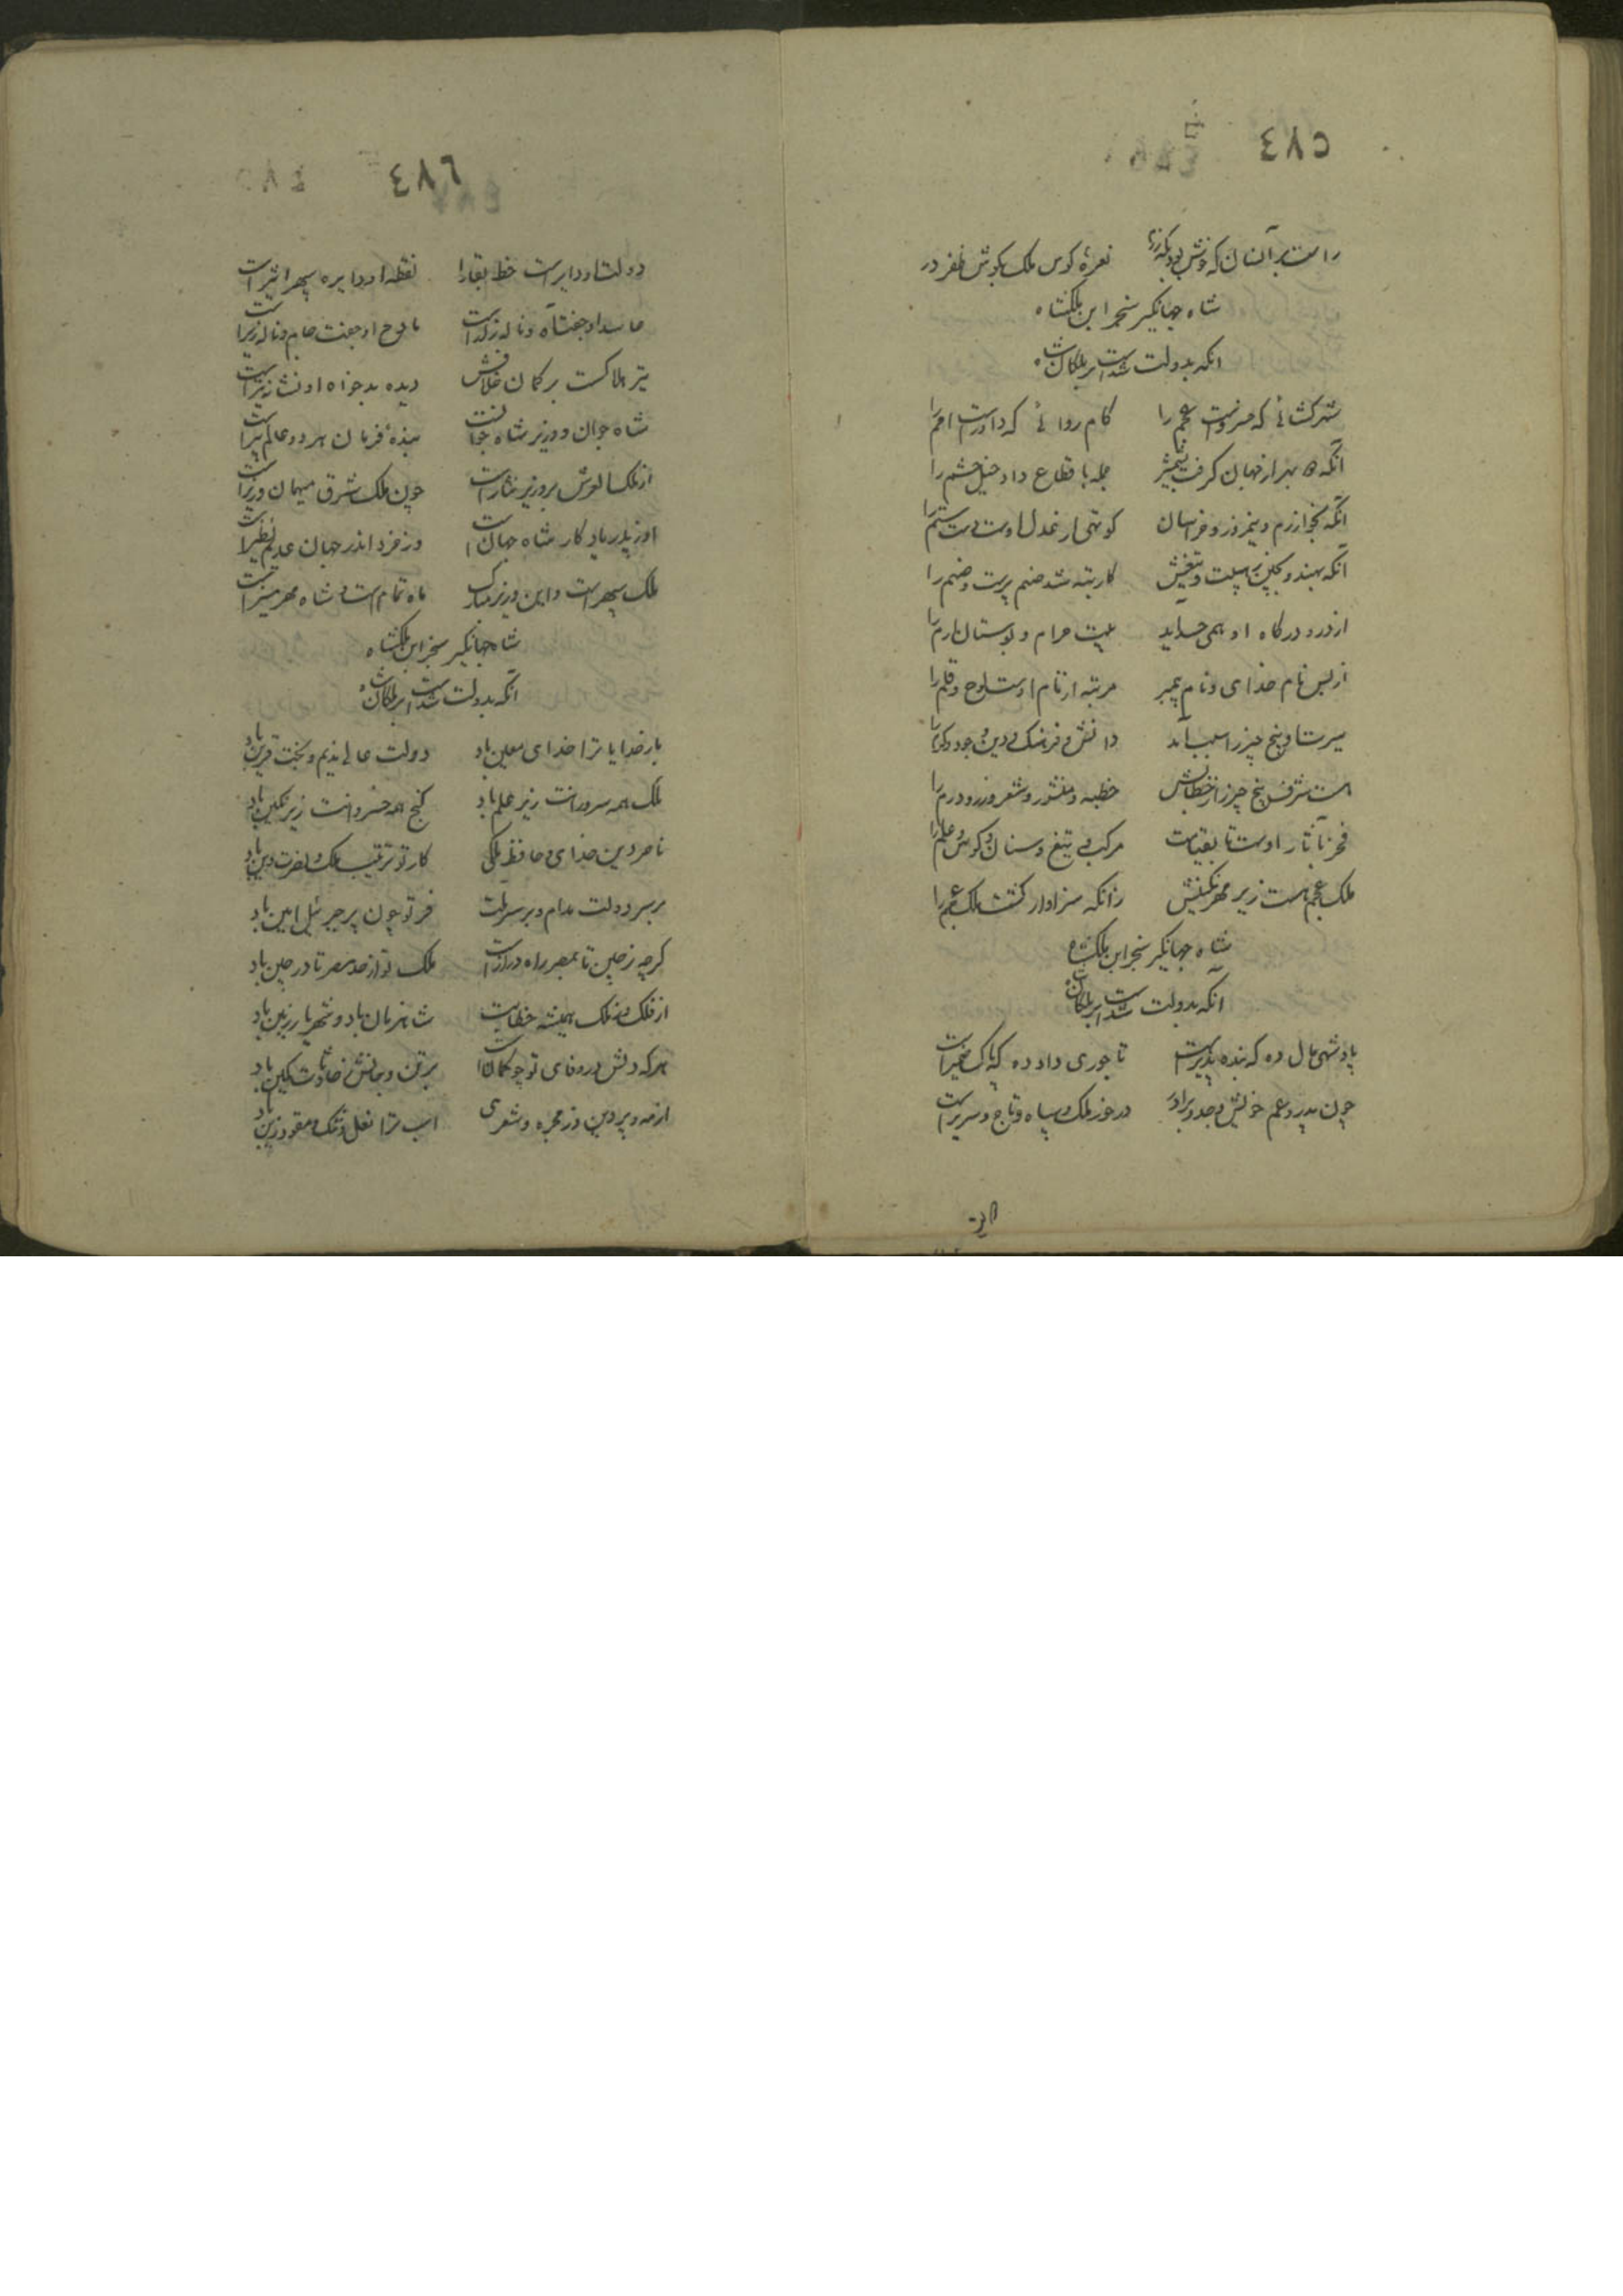 ٤٨٥
راست بر آنسان که خوش بود نعره کوس ملک بگوش ظفر در
شاه جهانگیر سنجر ابن ملکشاه
انکه بدولت شدست بر ملکان شاه
شهر کشائی که خسروست عجم را کام روائی که داورست امم را
آنکه بهر از جهان گرفت بشمشیر جمله باقطاع داد خیل و حشم را
آنکه بخوارزم و نیمروز و خراسان کوتهی از عدل اوست دست ستم را
آنکه بهند و بچین ز هیبت تیغش کار تبه شد صنم پرست و صنم را
از در و درگاه او همی حسد آید بیت حرام و بوستان ارم را
از پس نام خدای و نام پیمبر مرتبه از نام اوست لوح و قلم را
سیرت او پنج چیز را سبب آمد دانش و فرهنگ و دین و جود و کرم را
هست شرف پنج چیز را ز خطابش خطبه و منشور و شعر و زر و درم را
فخر بآثار اوست تا بقیامت مرکب و تیغ و سنان و کوس و علم را
ملک عجم هست زیر مهر نگینش زانکه سزاوار گشت ملک عجم را
شاه جهانگیر سنجر ابن ملکشاه
آنکه بدولت شدست بر ملکان شاه
پادشهی مال ده که بنده پذیرست تاجوری داد ده که پاک ضمیرست
چون پدر و عم خویش و جد و برادر در خور ملک و سپاه و تاج و سریرست
٤٨٦
دولت او دایرست خط بقا را نقطه او دایره سپهر اثیرست
حاسد او جفت آه و ناله زارست مادح او جفت جام و ناله زیرست
تیر هلاکست بر کمان خلافش دیده بدخواه او نشانه تیرست
شاه جوان و وزیر شاه جوانست بنده فرمان هر دو عالم پیرست
از ملکا لعرش بر وزیر نثارست چون ملک شرق میهمان وزیرست
او ز پدر یادگار شاه جهان است وز خرد اندر جهان عدیم نظیرست
ملک سپهر است و این وزیر مبارک ماه تمام است و شاه مهر منیرست
شاه جهانگیر سنجر ابن ملکشاه
آنکه بدولت شدست بر ملکان شاه
بار خدایا ترا خدای معین باد دولت عالی ندیم و بخت قرین باد
ملک همه سرورانت زیر علم باد گنج همه خسروانت زیر نگین باد
ناصر دین خدای و حافظ ملکی کار تو ترتیب ملک و نصرت دین باد
بر سر دولت مدام و بر سر ملت فر تو چون پر جبرئیل امین باد
گرچه ز چین تا بمصر راه درازست ملک تو از حد مصر تا در چین باد
از فلک و ملک همیشه خطابت شاه زمان باد و شهریار زمین باد
هر که دلش در وفای تو چو کمانست بر تن و جانش ز حادثات کمین باد
از مه و پروین وز مجره و شعری اسب ترا نعل و تنگ و مقود و زین باد